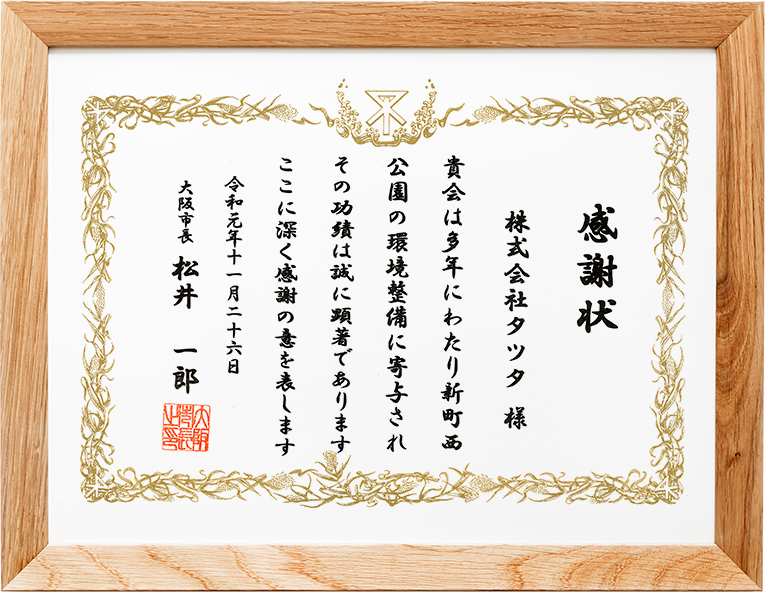 感謝状
株式会社タツタ 様
貴会は多年にわたり新町西
公園の環境整備に寄与され
その功績は誠に顕著であります
ここに深く感謝の意を表します
令和元年十一月二十六日
大阪市長 松井 一郎
大阪市長之印